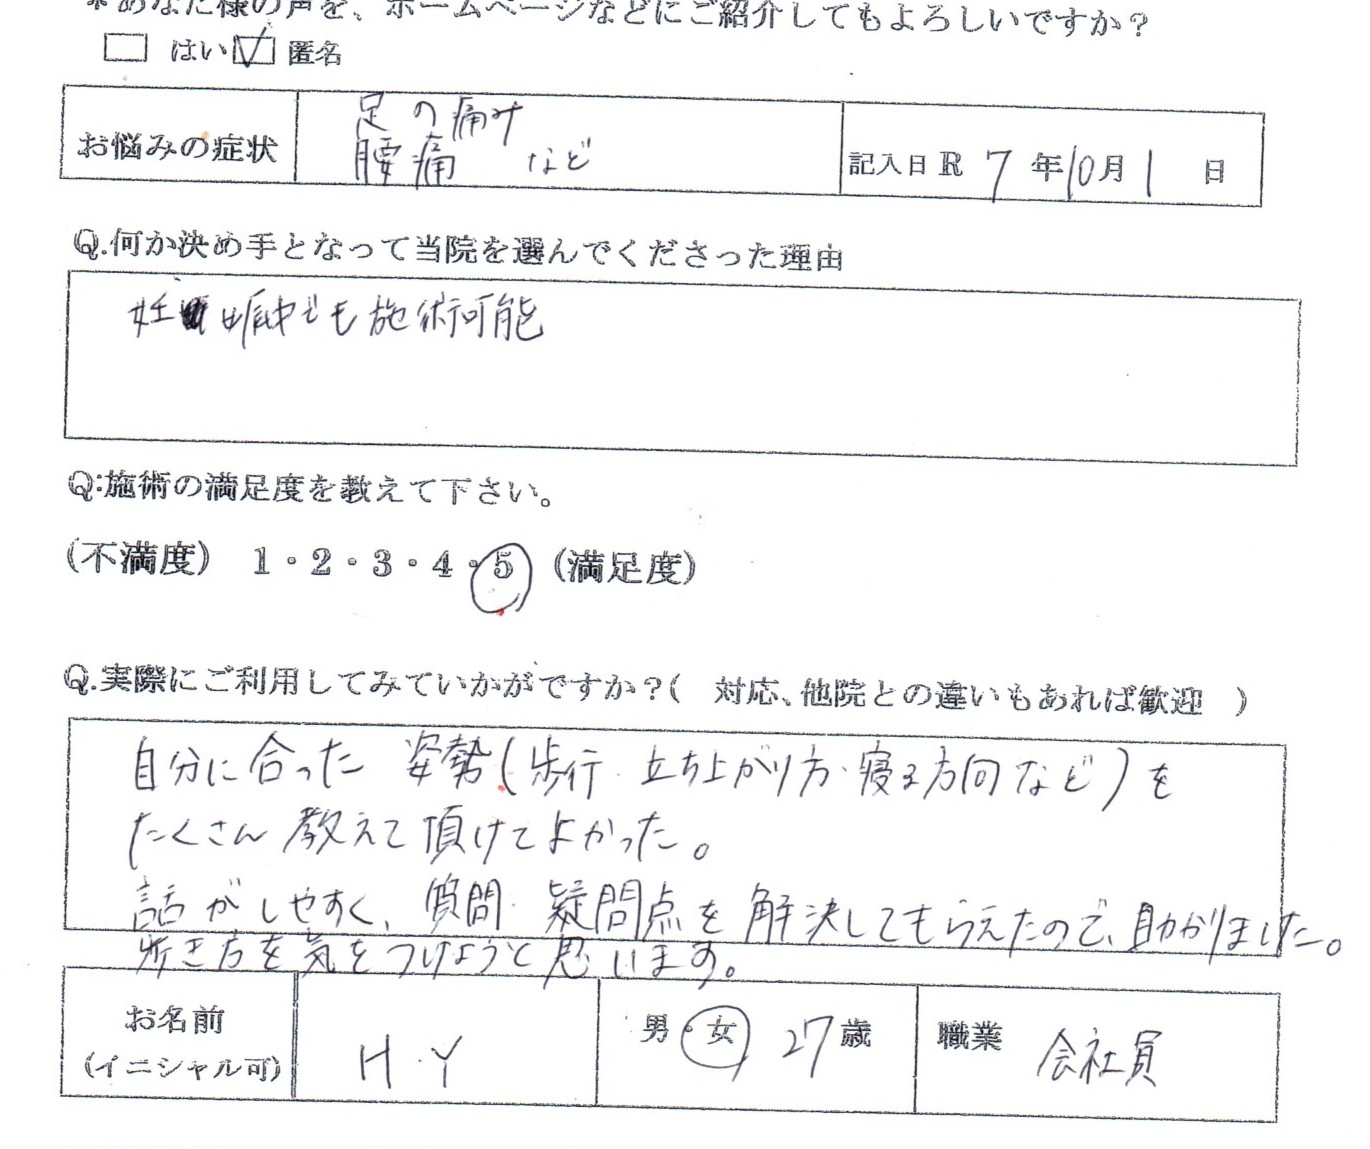 *あなた様の声を、ホームページなどにご紹介してもよろしいですか？
はい 匿名
お悩みの症状 足の痛み
腰痛 など
記入日R 7年10月1日
Q.何か決め手となって当院を選んでくださった理由
妊娠中でも施術可能
Q:施術の満足度を教えて下さい。
(不満度) 1・2・3・4・5 (満足度)
Q.実際にご利用してみていかがですか？( 対応、他院との違いもあれば歓迎 )
自分に合った姿勢(歩行・立ち上がり方・寝る方向など)を
たくさん教えて頂けてよかった。
話がしやすく、質問・疑問点を解決してもらえたので、助かりました。
歩き方を気をつけようと思います。
お名前
(イニシャル可)
H・Y
男・女 27歳
職業 会社員